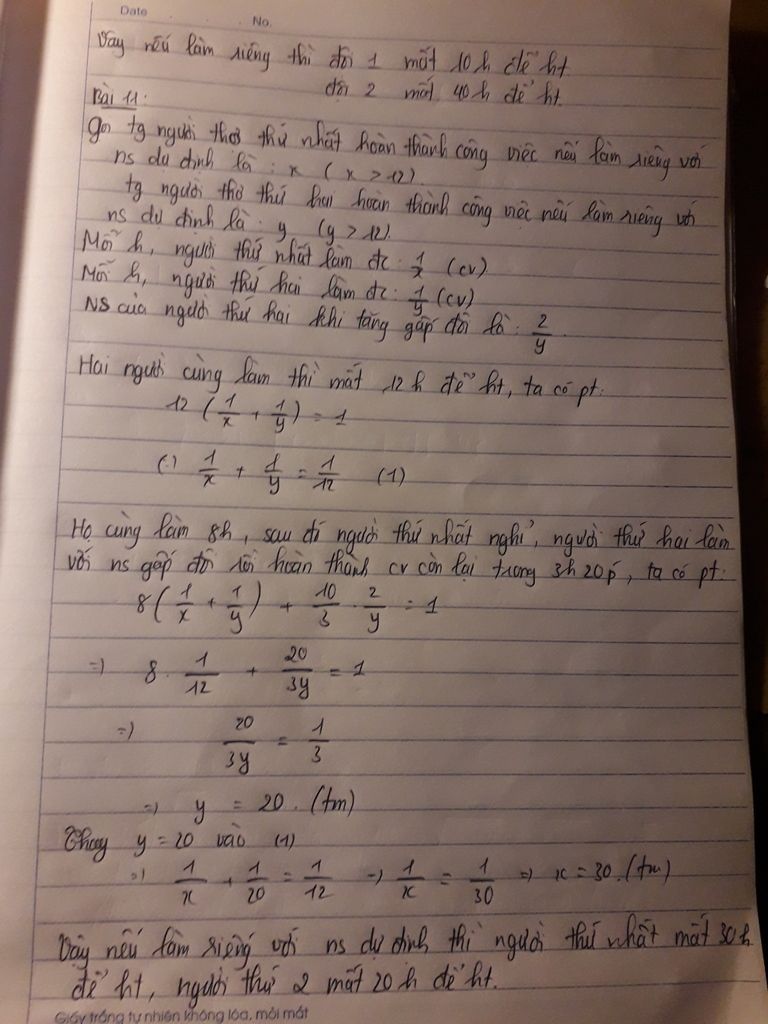 Date No.
Vậy nếu làm riêng thì đội 1 mất 10h để ht
đội 2 mất 40h để ht.
Bài 11:
Gọi tg người thợ thứ nhất hoàn thành công việc nếu làm riêng với
ns dự định là: x (x > 12)
tg người thợ thứ hai hoàn thành công việc nếu làm riêng với
ns dự định là: y (y > 12)
Mỗi h, người thứ nhất làm đc: 1/x (cv)
Mỗi h, người thứ hai làm đc: 1/y (cv)
NS của người thứ hai khi tăng gấp đôi là: 2/y.
Hai người cùng làm thì mất 12h để ht, ta có pt:
12 (1/x + 1/y) = 1
(=) 1/x + 1/y = 1/12 (1)
Họ cùng làm 8h, sau đó người thứ nhất nghỉ, người thứ hai làm
với ns gấp đôi rồi hoàn thành cv còn lại trong 3h20p, ta có pt:
8(1/x + 1/y) + 10/3 . 2/y = 1
=) 8 . 1/12 + 20/3y = 1
=) 20/3y = 1/3
=) y = 20. (tm)
Thay y = 20 vào (1)
=) 1/x + 1/20 = 1/12 =) 1/x = 1/30 =) x = 30. (tm)
Vậy nếu làm riêng với ns dự định thì người thứ nhất mất 30h
để ht, người thứ 2 mất 20h để ht.
Giấy trắng tự nhiên không lóa, mỏi mắt